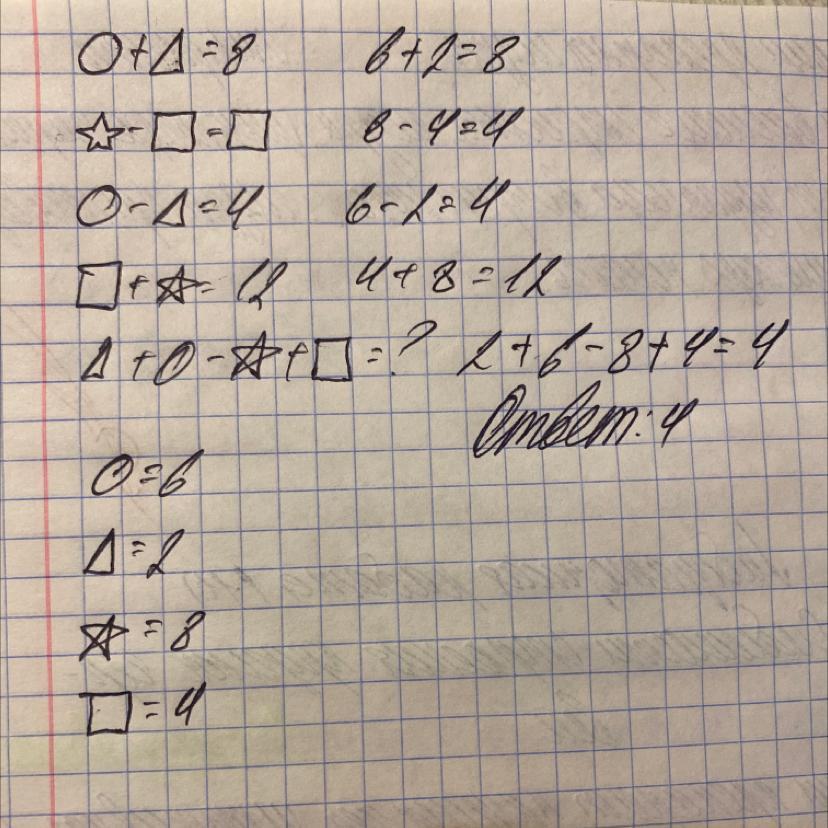 ○ + △ = 8 6 + 2 = 8
☆ - □ = □ 8 - 4 = 4
○ - △ = 4 6 - 2 = 4
□ + ☆ = 12 4 + 8 = 12
△ + ○ - ☆ + □ = ? 2 + 6 - 8 + 4 = 4
Ответ: 4
○ = 6
△ = 2
☆ = 8
□ = 4